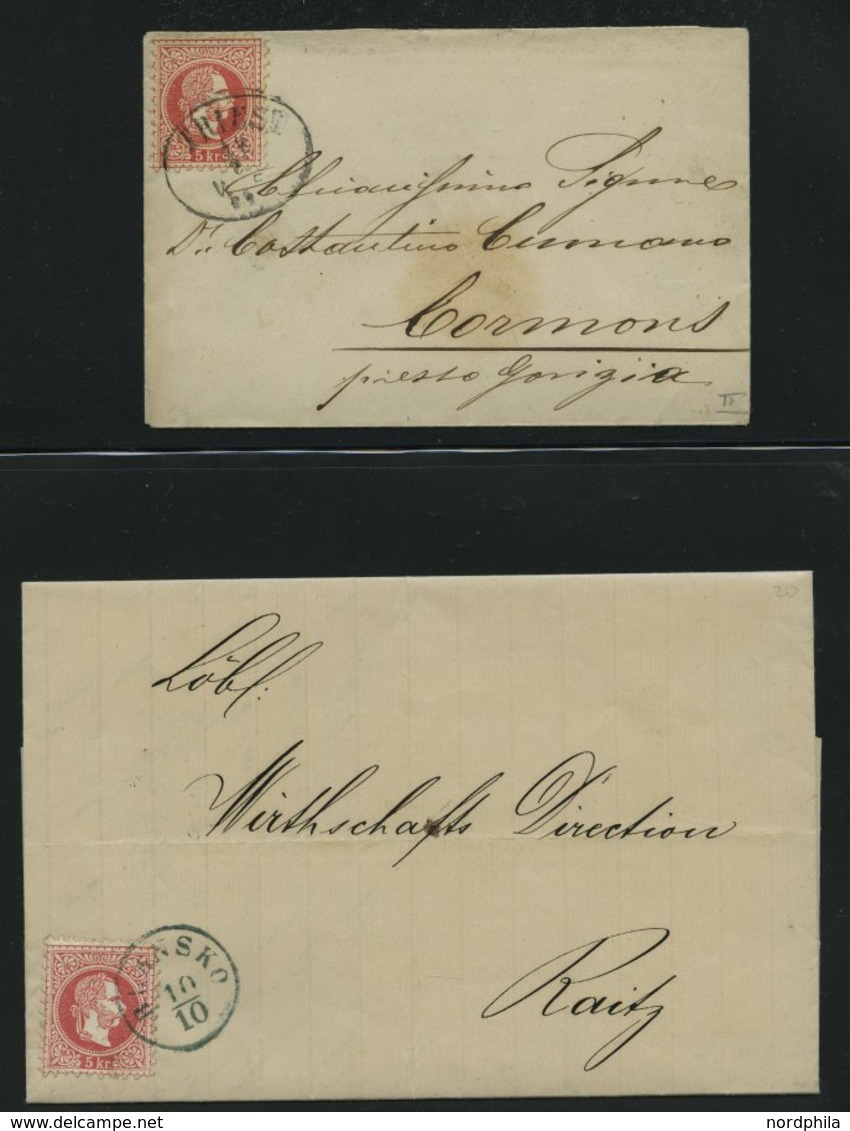 5 kr.
TRIEST
Chiarissimo Signore
Dr. Costantino Cumano
Cormons
presso Gorizia
II
20
Löbl.
Wirthschafts Direction
Raitz
BLANSKO
10/10
5 kr.
nordphila